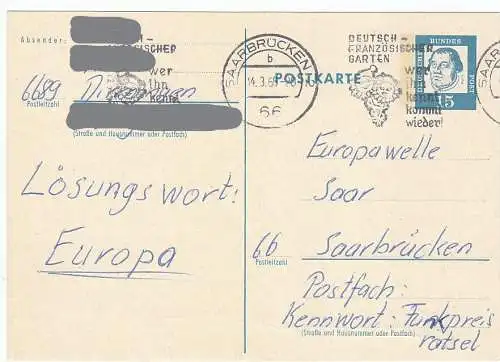 Absender:
DEUTSCH-
FRANZÖSISCHER
GARTEN
wer
ihn
kennt
kommt
wieder!
SAARBRÜCKEN
b
66
POSTKARTE
DEUTSCHE BUNDESPOST
15
6689
Postleitzahl
(Straße und Hausnummer oder Postfach)
Lösungswort:
Europa
Europawelle
Saar
66 Saarbrücken
Postleitzahl
Postfach:
Kennwort: Funkpreis
(Straße und Hausnummer oder Postfach)
rätsel